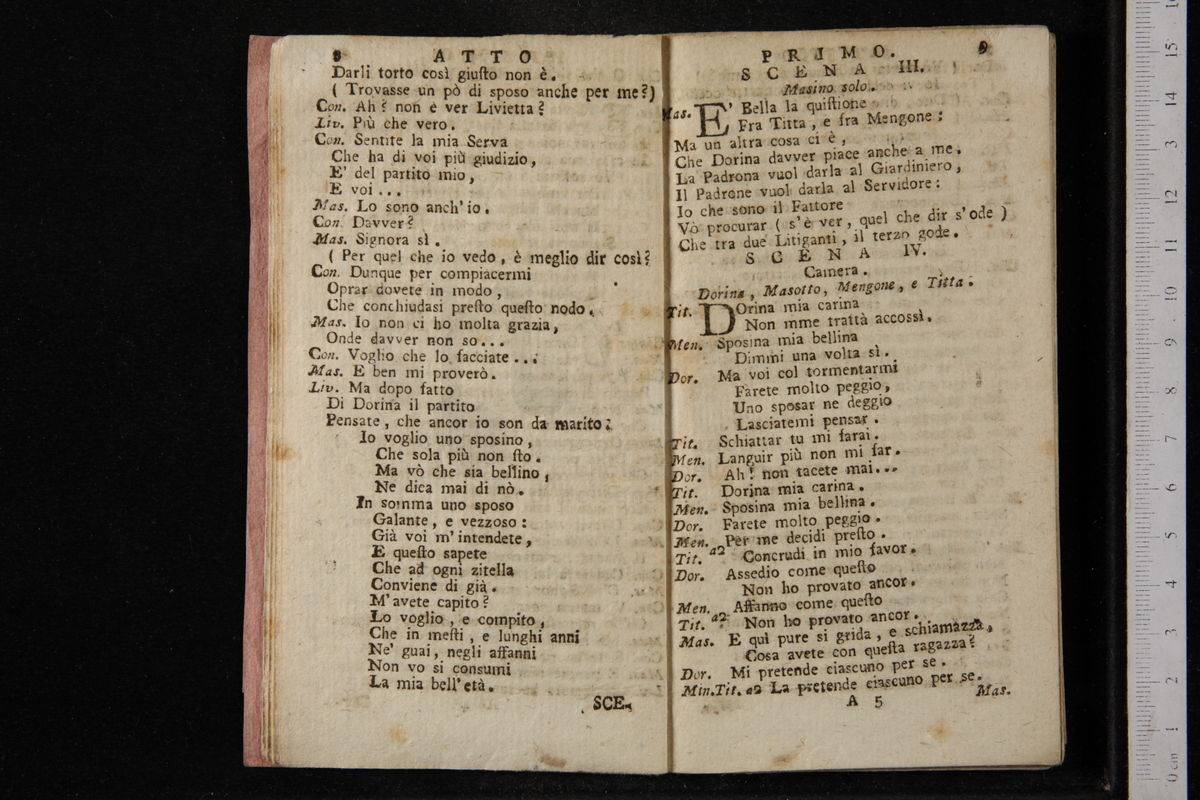 8 ATTO
Darli torto così giuſto non è.
( Trovasse un pò di sposo anche per me?)
Con. Ah? non è ver Livietta?
Liv. Più che vero.
Con. Sentite la mia Serva
Che ha di voi più giudizio,
E' del partito mio,
E voi ...
Mas. Lo sono anch' io.
Con. Davver?
Mas. Signora sì.
( Per quel che io vedo, è meglio dir così?
Con. Dunque per compiacermi
Oprar dovete in modo,
Che conchiudasi preſto queſto nodo.
Mas. Io non ci ho molta grazia,
Onde davver non so...
Con. Voglio che lo facciate ...
Mas. E ben mi proverò.
Liv. Ma dopo fatto
Di Dorina il partito
Pensate, che ancor io son da marito?
Io voglio uno sposino,
Che sola più non ſto.
Ma vò che sia bellino,
Ne dica mai di nò.
In somma uno sposo
Galante, e vezzoso:
Già voi m' intendete,
E queſto sapete
Che ad ogni zitella
Conviene di già.
M' avete capito?
Lo voglio, e compito,
Che in meſti, e lunghi anni
Ne' guai, negli affanni
Non vo si consumi
La mia bell' età.
SCE-
PRIMO. 9
SCENA III.
Masino solo.
Mas. E' Bella la quiſtione
Fra Titta, e fra Mengone:
Ma un altra cosa ci è,
Che Dorina davver piace anche a me.
La Padrona vuol darla al Giardiniero,
Il Padrone vuol darla al Servidore:
Io che sono il Fattore
Vò procurar ( s' è ver, quel che dir s' ode )
Che tra due Litiganti, il terzo gode.
SCENA IV.
Camera.
Dorina, Masotto, Mengone, e Titta.
Tit. DOrina mia carina
Non mme trattà accossì.
Men. Sposina mia bellina
Dimmi una volta sì.
Dor. Ma voi col tormentarmi
Farete molto peggio,
Uno sposar ne deggio
Lasciatemi pensar.
Tit. Schiattar tu mi farai.
Men. Languir più non mi far.
Dor. Ah! non tacete mai...
Tit. Dorina mia carina.
Men. Sposina mia bellina.
Dor. Farete molto peggio.
Men. Per me decidi preſto.
Tit. a2 Concrudi in mio favor.
Dor. Assedio come queſto
Non ho provato ancor.
Men. Affanno come queſto
Tit. a2 Non ho provato ancor.
Mas. E quì pure si grida, e schiamazza,
Cosa avete con queſta ragazza?
Dor. Mi pretende ciascuno per se.
Min.Tit. a2 La pretende ciascuno per se.
A 5 Mas.
0 cm 1 2 3 4 5 6 7 8 9 10 11 12 13 14 15